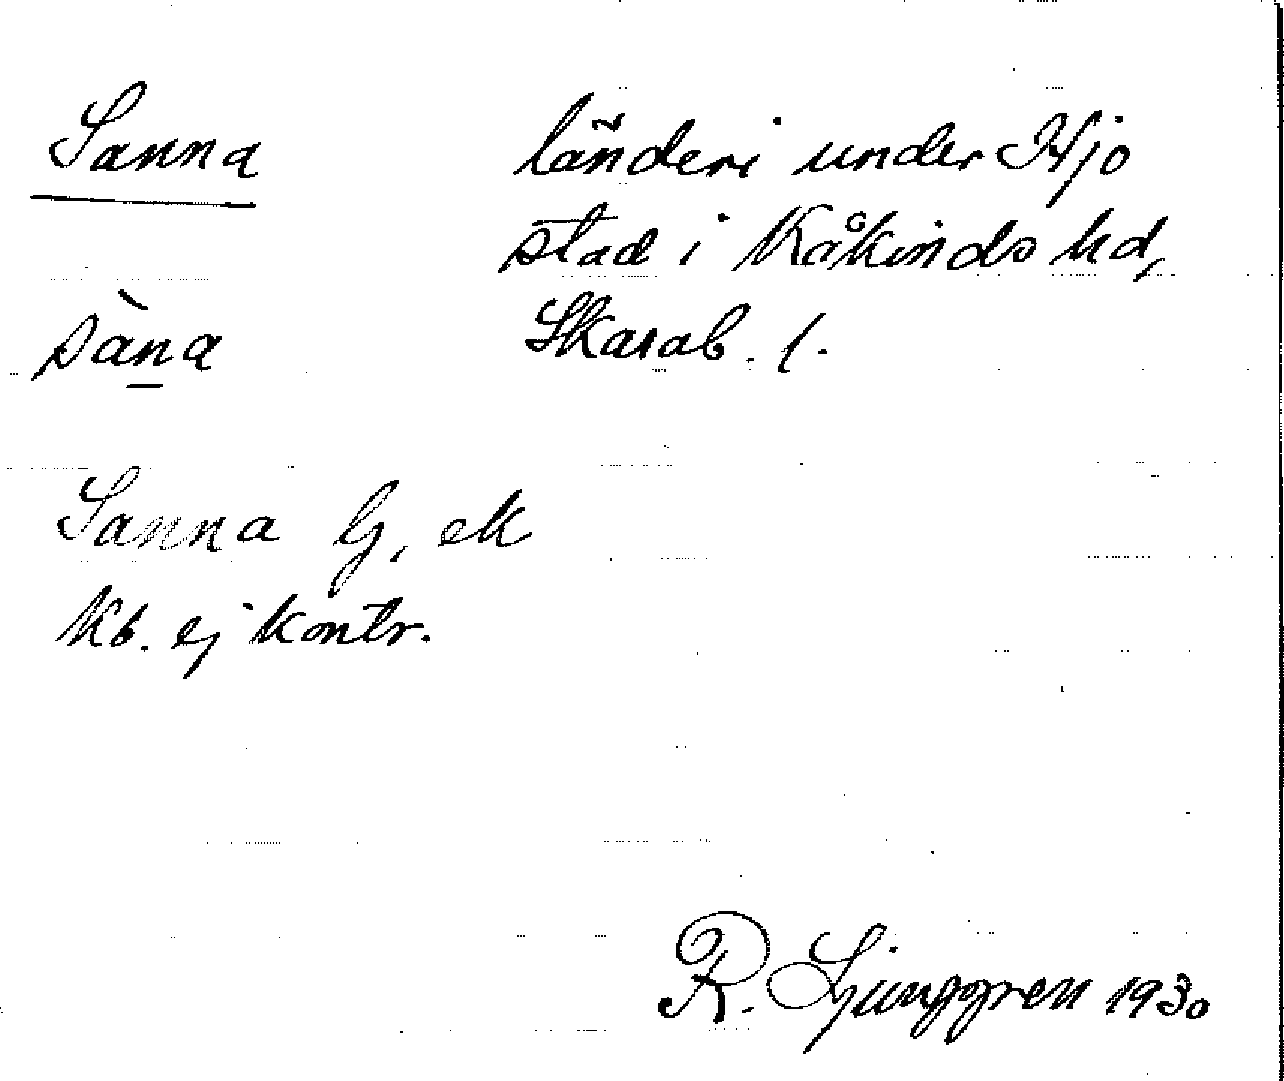 Sanna
länderi under Hjo
stad i Kåkinds hd,
Skarab. l.
sàn̲a
Sanna G, ek
Kb. ej kontr.
R. Ljunggren 1930